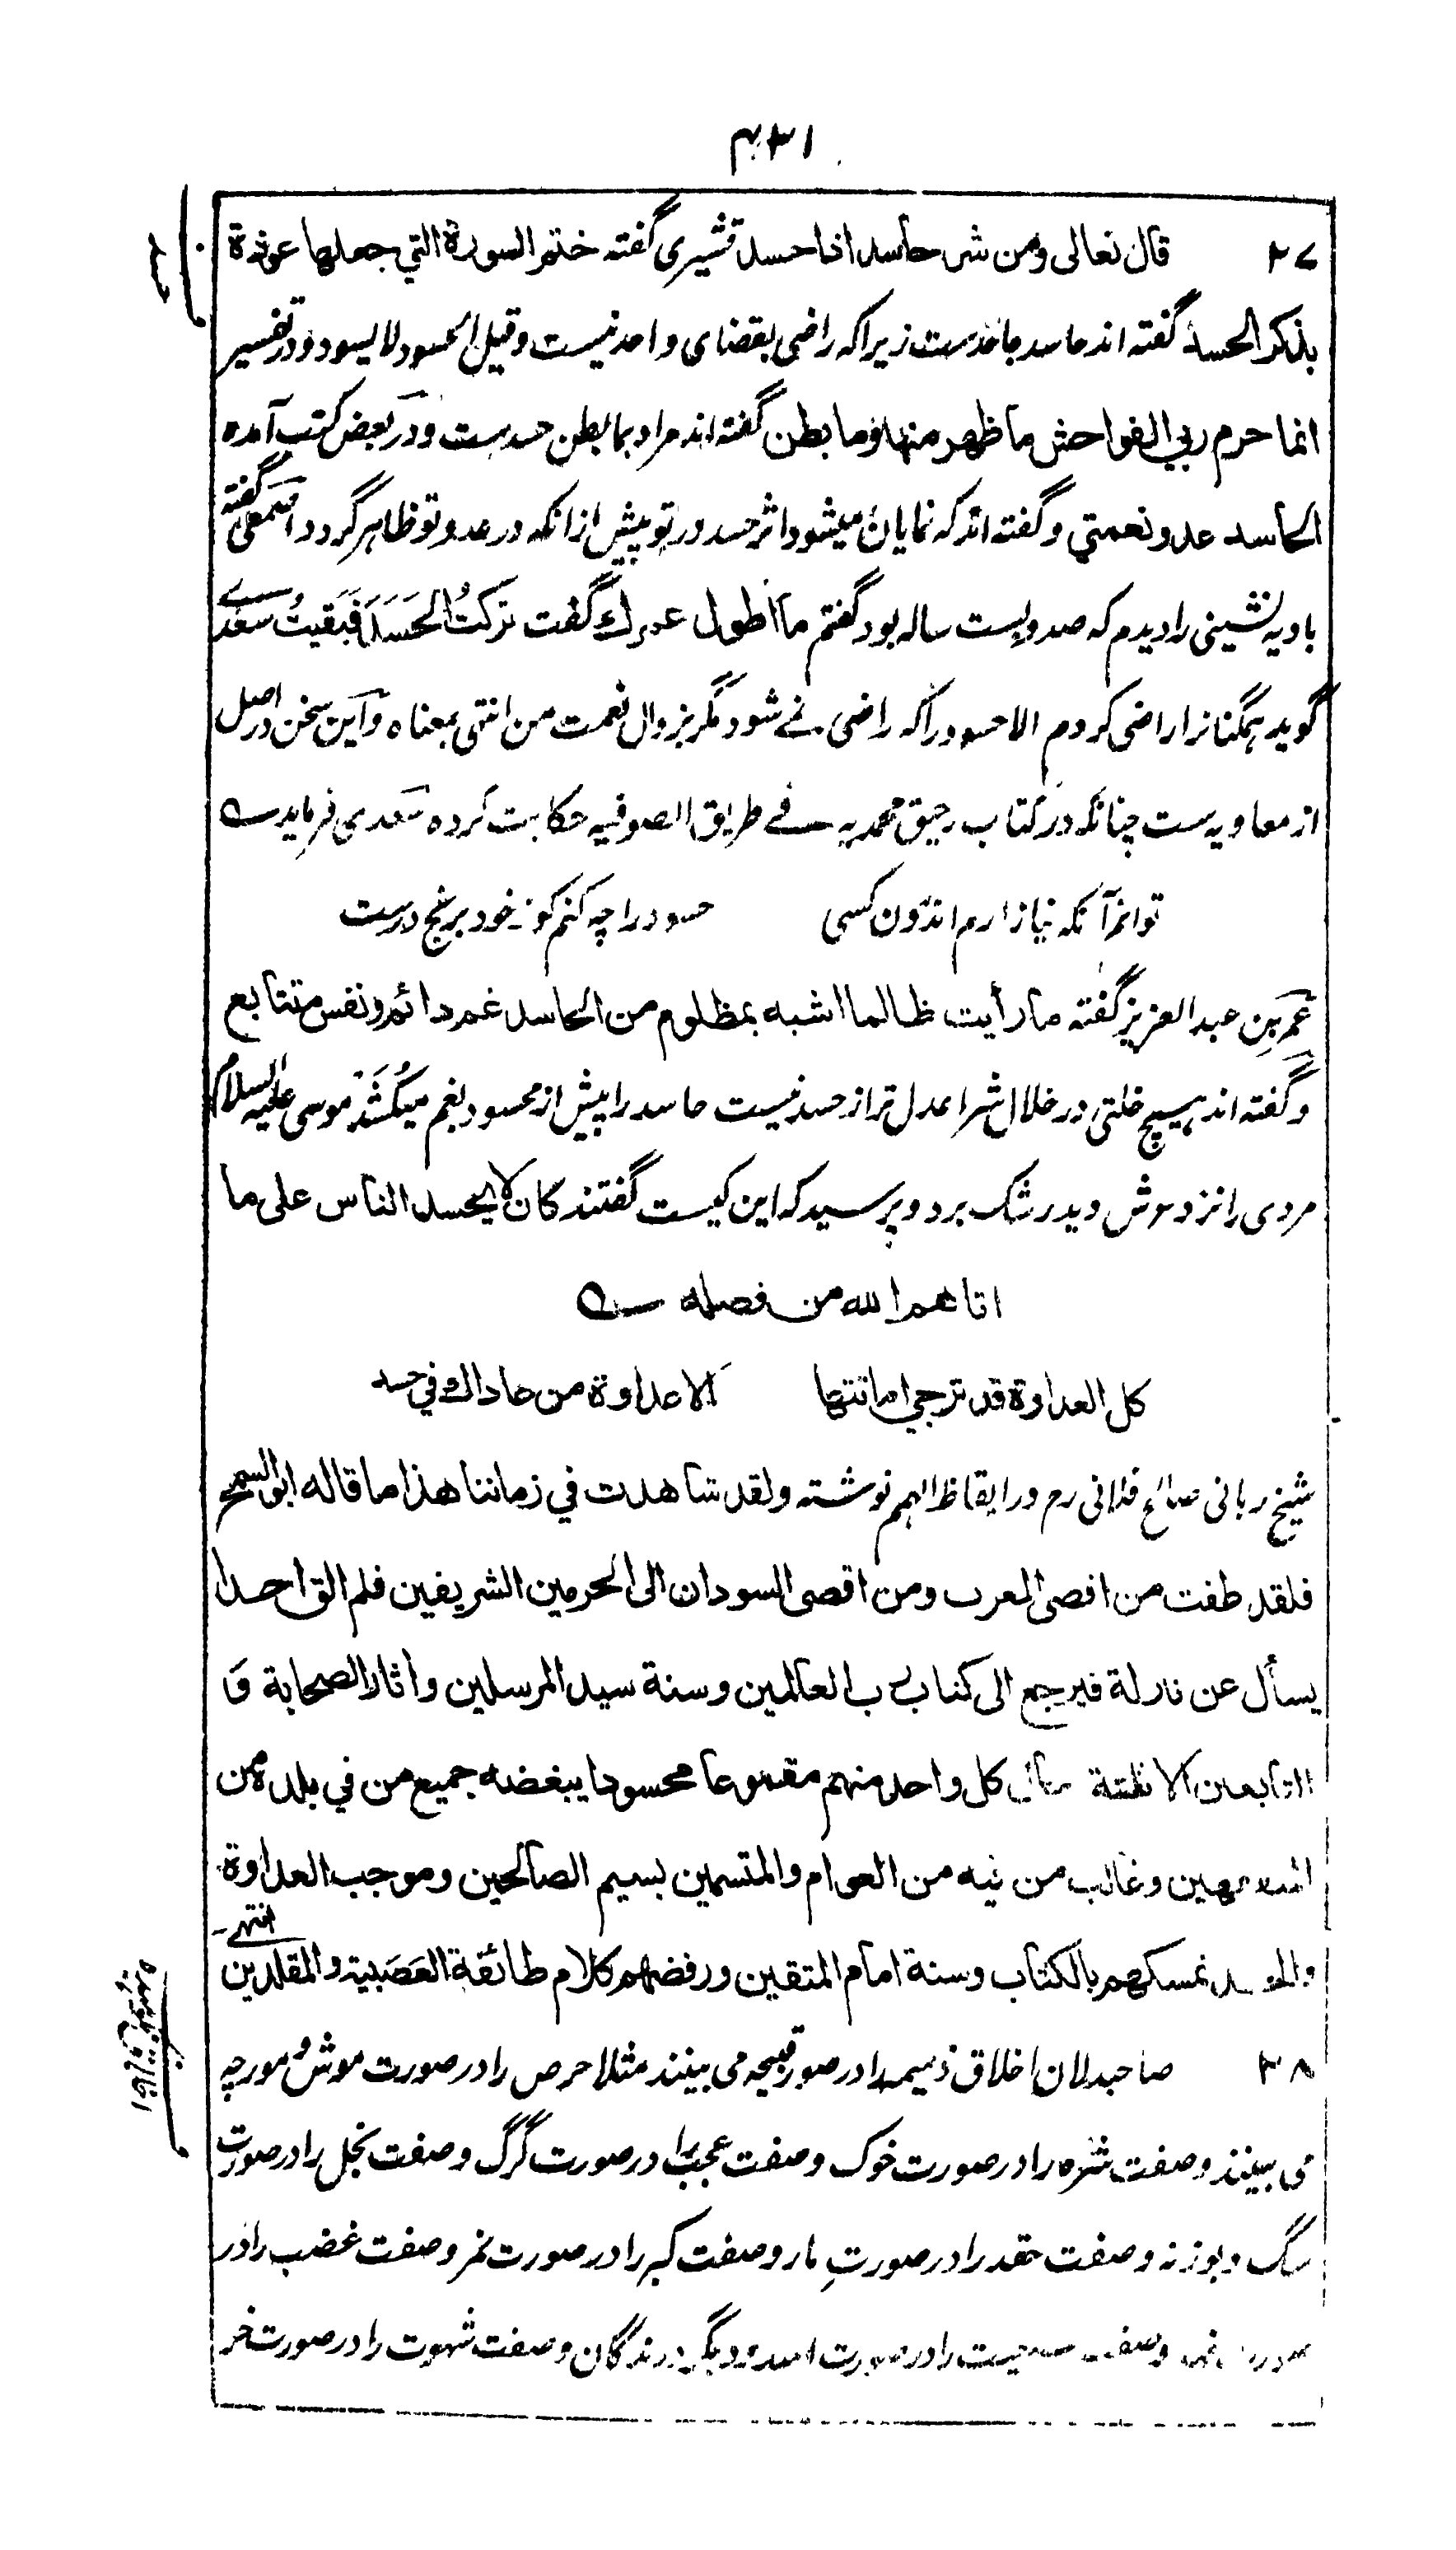 ۴۳۱
۳۷ قال تعالى ومن شر حاسد اذا حسد قشیری گفته ختم السورة التي جعلها عوذة
بذكر الحسد گفته اند حاسد جاحدست زیرا که راضی بقضای واحد نیست وقیل الحسود لا یسود و در تفسیر
انما حرم ربي الفواحش ما ظهر منها وما بطن گفته اند مراد بما بطن حسدست و در بعض کتب آمده
الحاسد عدو نعمتي و گفته اند که نمایان میشود اثر حسد در تو پیش ازانکه در عدو تو ظاهر گردد اصمعی گفته
بادیه نشینی را دیدم که صد و بست ساله بود گفتم ما اطول عمرك گفت تركتُ الحَسَدَ فَبَقيتُ سعدے
گوید همگنانرا راضی کردم الا حسود را که راضی نمے شود مگر بزوال نعمت من انتهی بمعناه و این سخن در اصل
از معاویه ست چنانکه در کتاب رحیق محمدیه فے طریق الصوفیه حکایت کرده سعدی فرماید
توانم آنکه نیازارم اندرون کسی حسود را چه کنم کو ز خود برنج درست
عمر بن عبد العزیز گفته ما رأيت ظالما اشبه بمظلوم من الحاسد غم دائم ونفس متتابع
و گفته اند هیچ خلتی در خلال شر اعدل تر از حسد نیست حاسد را پیش از محسود بغم میکُشَد موسی علیه السلام
مردی را نزد عرش دید رشک برد و پرسید که این کیست گفتند كان لا يحسد الناس على ما
اتاهم الله من فضله
كل العداوة قد ترجى اماتتها الا عداوة من عاداك في حسد
شیخ ربانی صالح فلانی رم در ایقاظ الهمم نوشته ولقد شاهدت في زماننا هذا ما قاله ابو السمح
فلقد طفت من اقصى المغرب ومن اقصى السودان الى الحرمين الشريفين فلم الق احدا
يسأل عن نازلة فيرجع الى كتاب رب العالمين وسنة سيد المرسلين واثار الصحابة و
التابعين الا ثلثة كل واحد منهم مقموعا محسودا يبغضه جميع من في بلده من
المتفقهين وغالب من فيه من العوام والمتسمين بسيم الصالحين وموجب العداوة
والحسد تمسكهم بالكتاب وسنة امام المتقين ورفضهم كلام طائفة العَصَبية والمقلدين انتهى
۳۸ صاحبدلان اخلاق ذمیمه را در صور قبیحه می بینند مثلا حرص را در صورت موش و مورچه
می بینند و صفت شره را در صورت خوک و صفت عجب را در صورت گرگ و صفت بخل را در صورت
سگ و بوزنه و صفت حقد را در صورتِ مار و صفت کبر را در صورت نمر و صفت غضب را در
وصفت را در صورت اسد و دیگر درندگان و صفت شهوت را در صورت خر